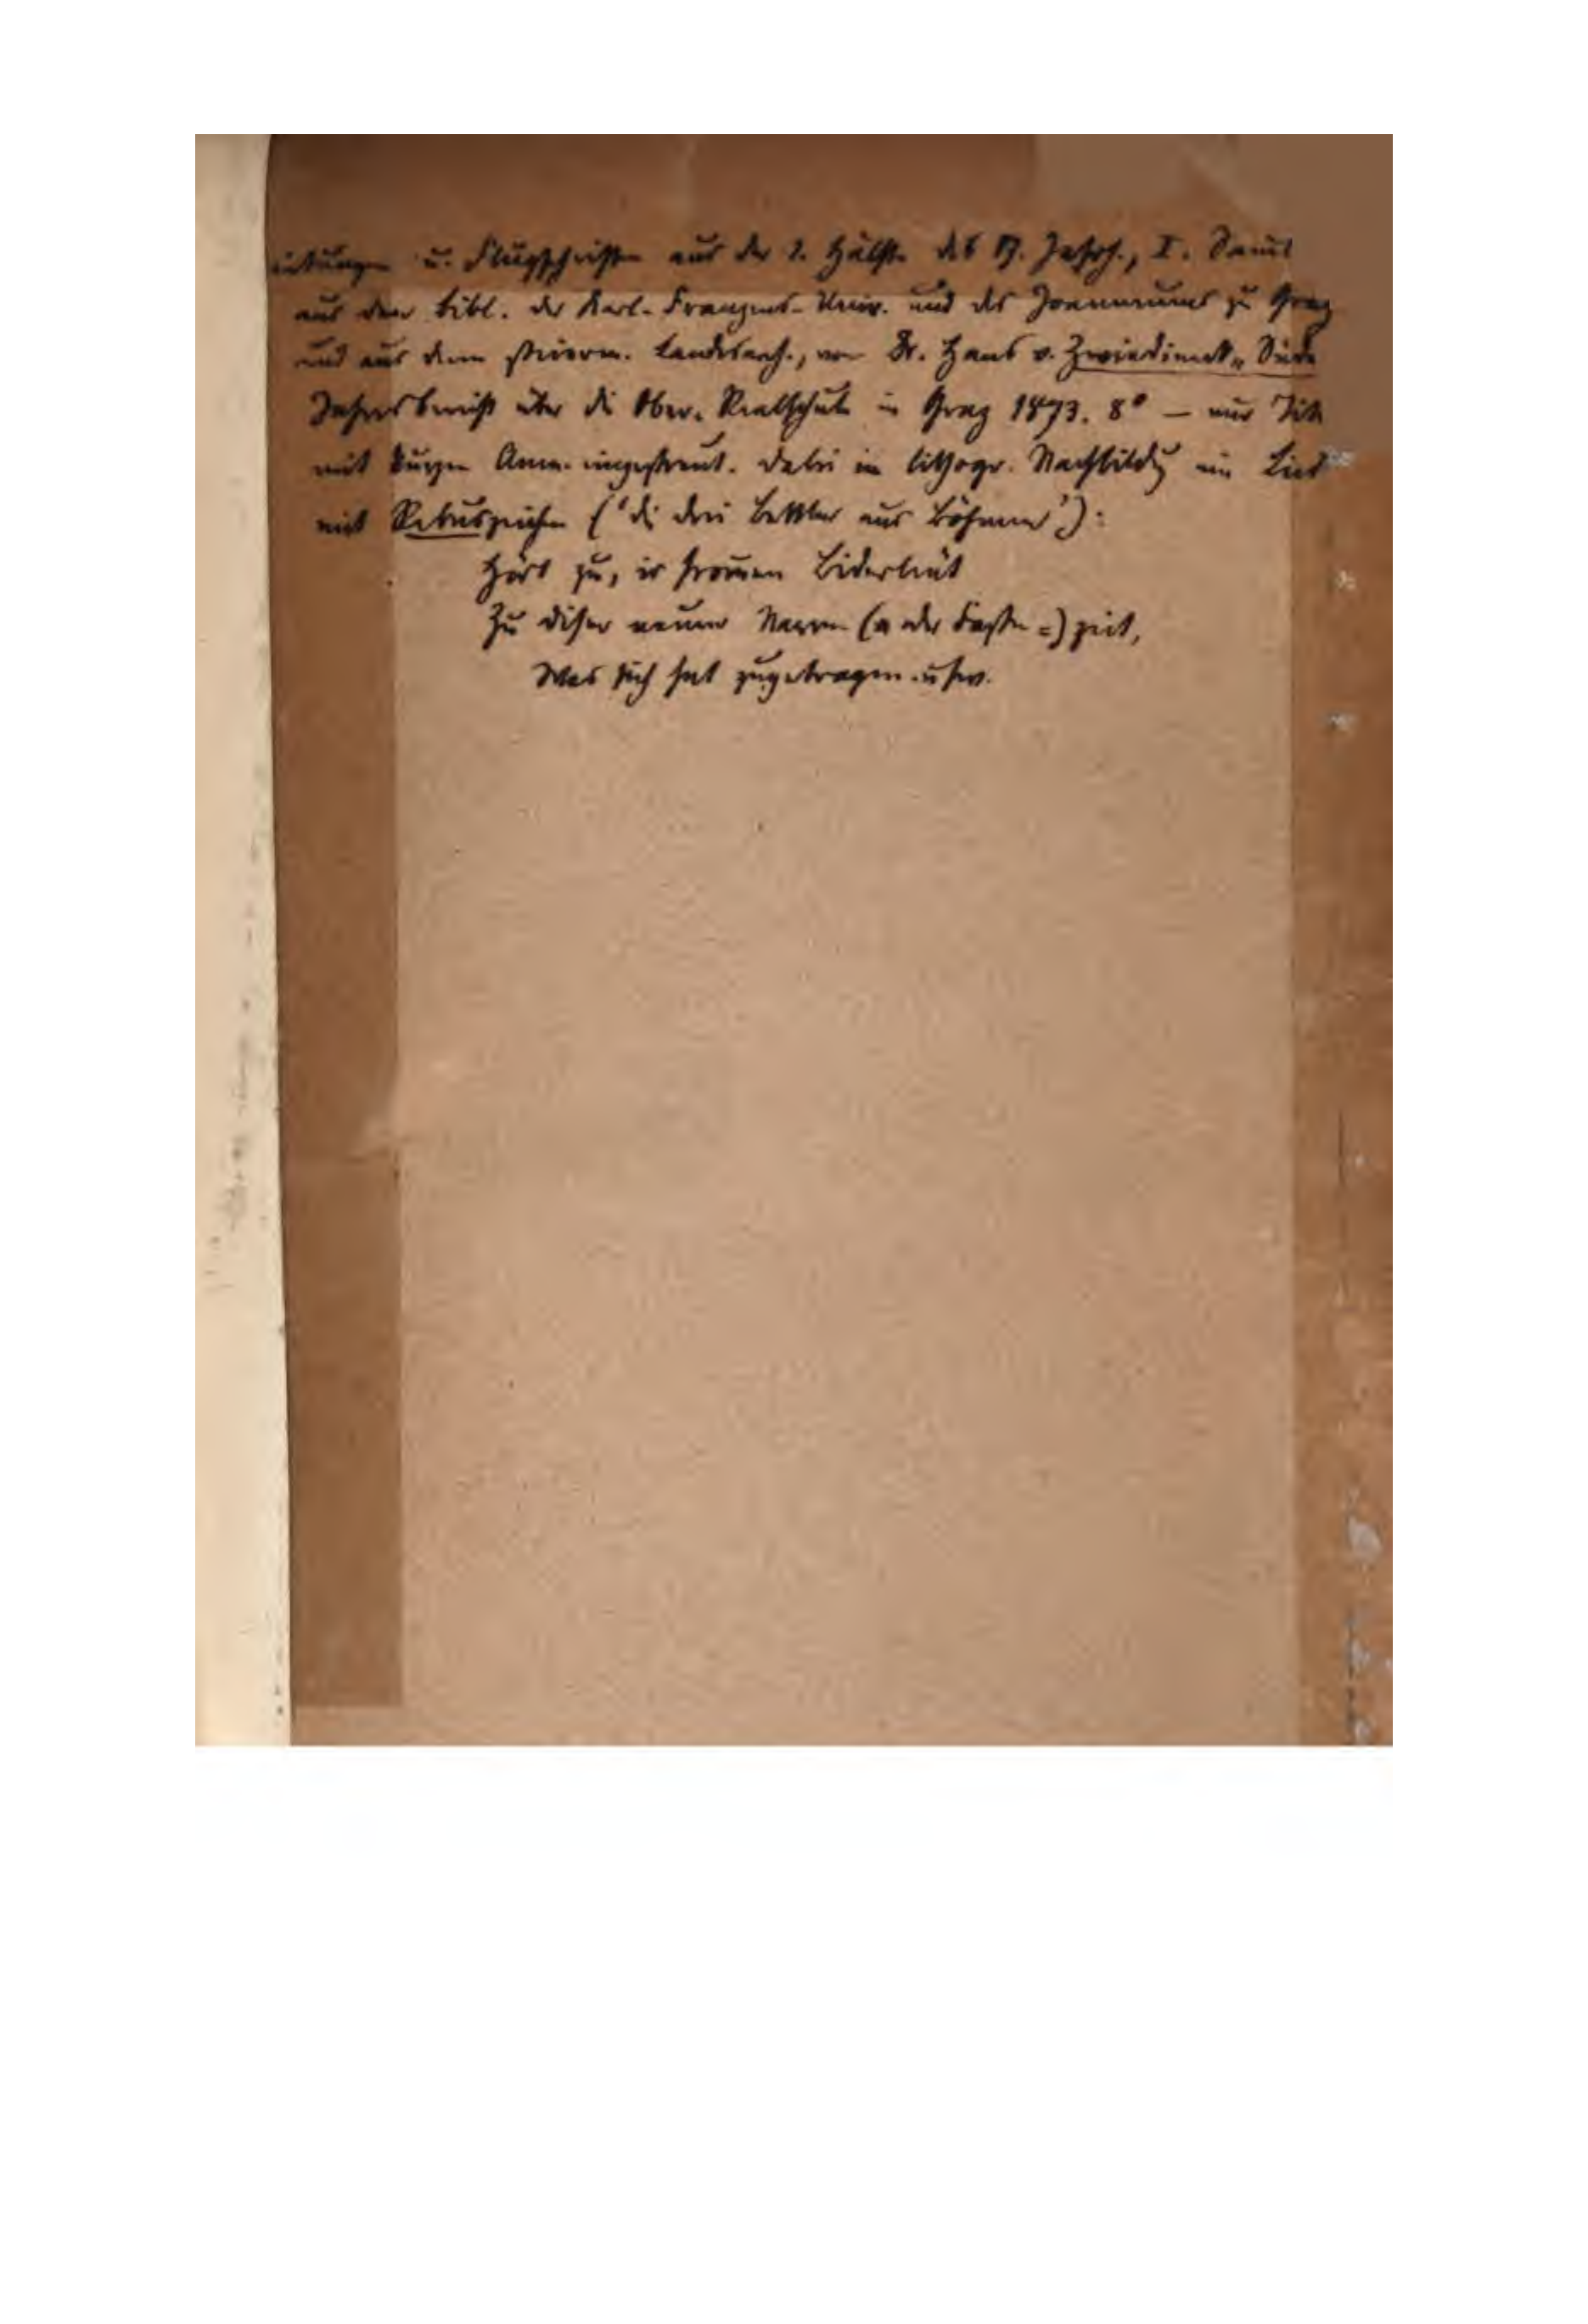 eitungen u. Flugschriften aus der 1. Hälfte des 17. Jahrh., I. Saml
aus den Bibl. der Karl-Franzens-Univ. und des Joanneums zu Graz
und aus dem steierm. Landesarch., von Dr. Hans v. Zwiedineck-Süde
Jahresbericht über die Ober-Realschule in Graz 1873. 8° — nur Tit
mit kurzen Anm. eingestreut. dabei in lithogr. Nachbildg ein Lied
mit Rebuszeichen ('di drei Bettler aus Böhmen'):
Hört zu, ir fromen Biderleut
Zu diser neuen Narren (a oder Fasten=) zeit,
Was sich hat zugetragen usw.